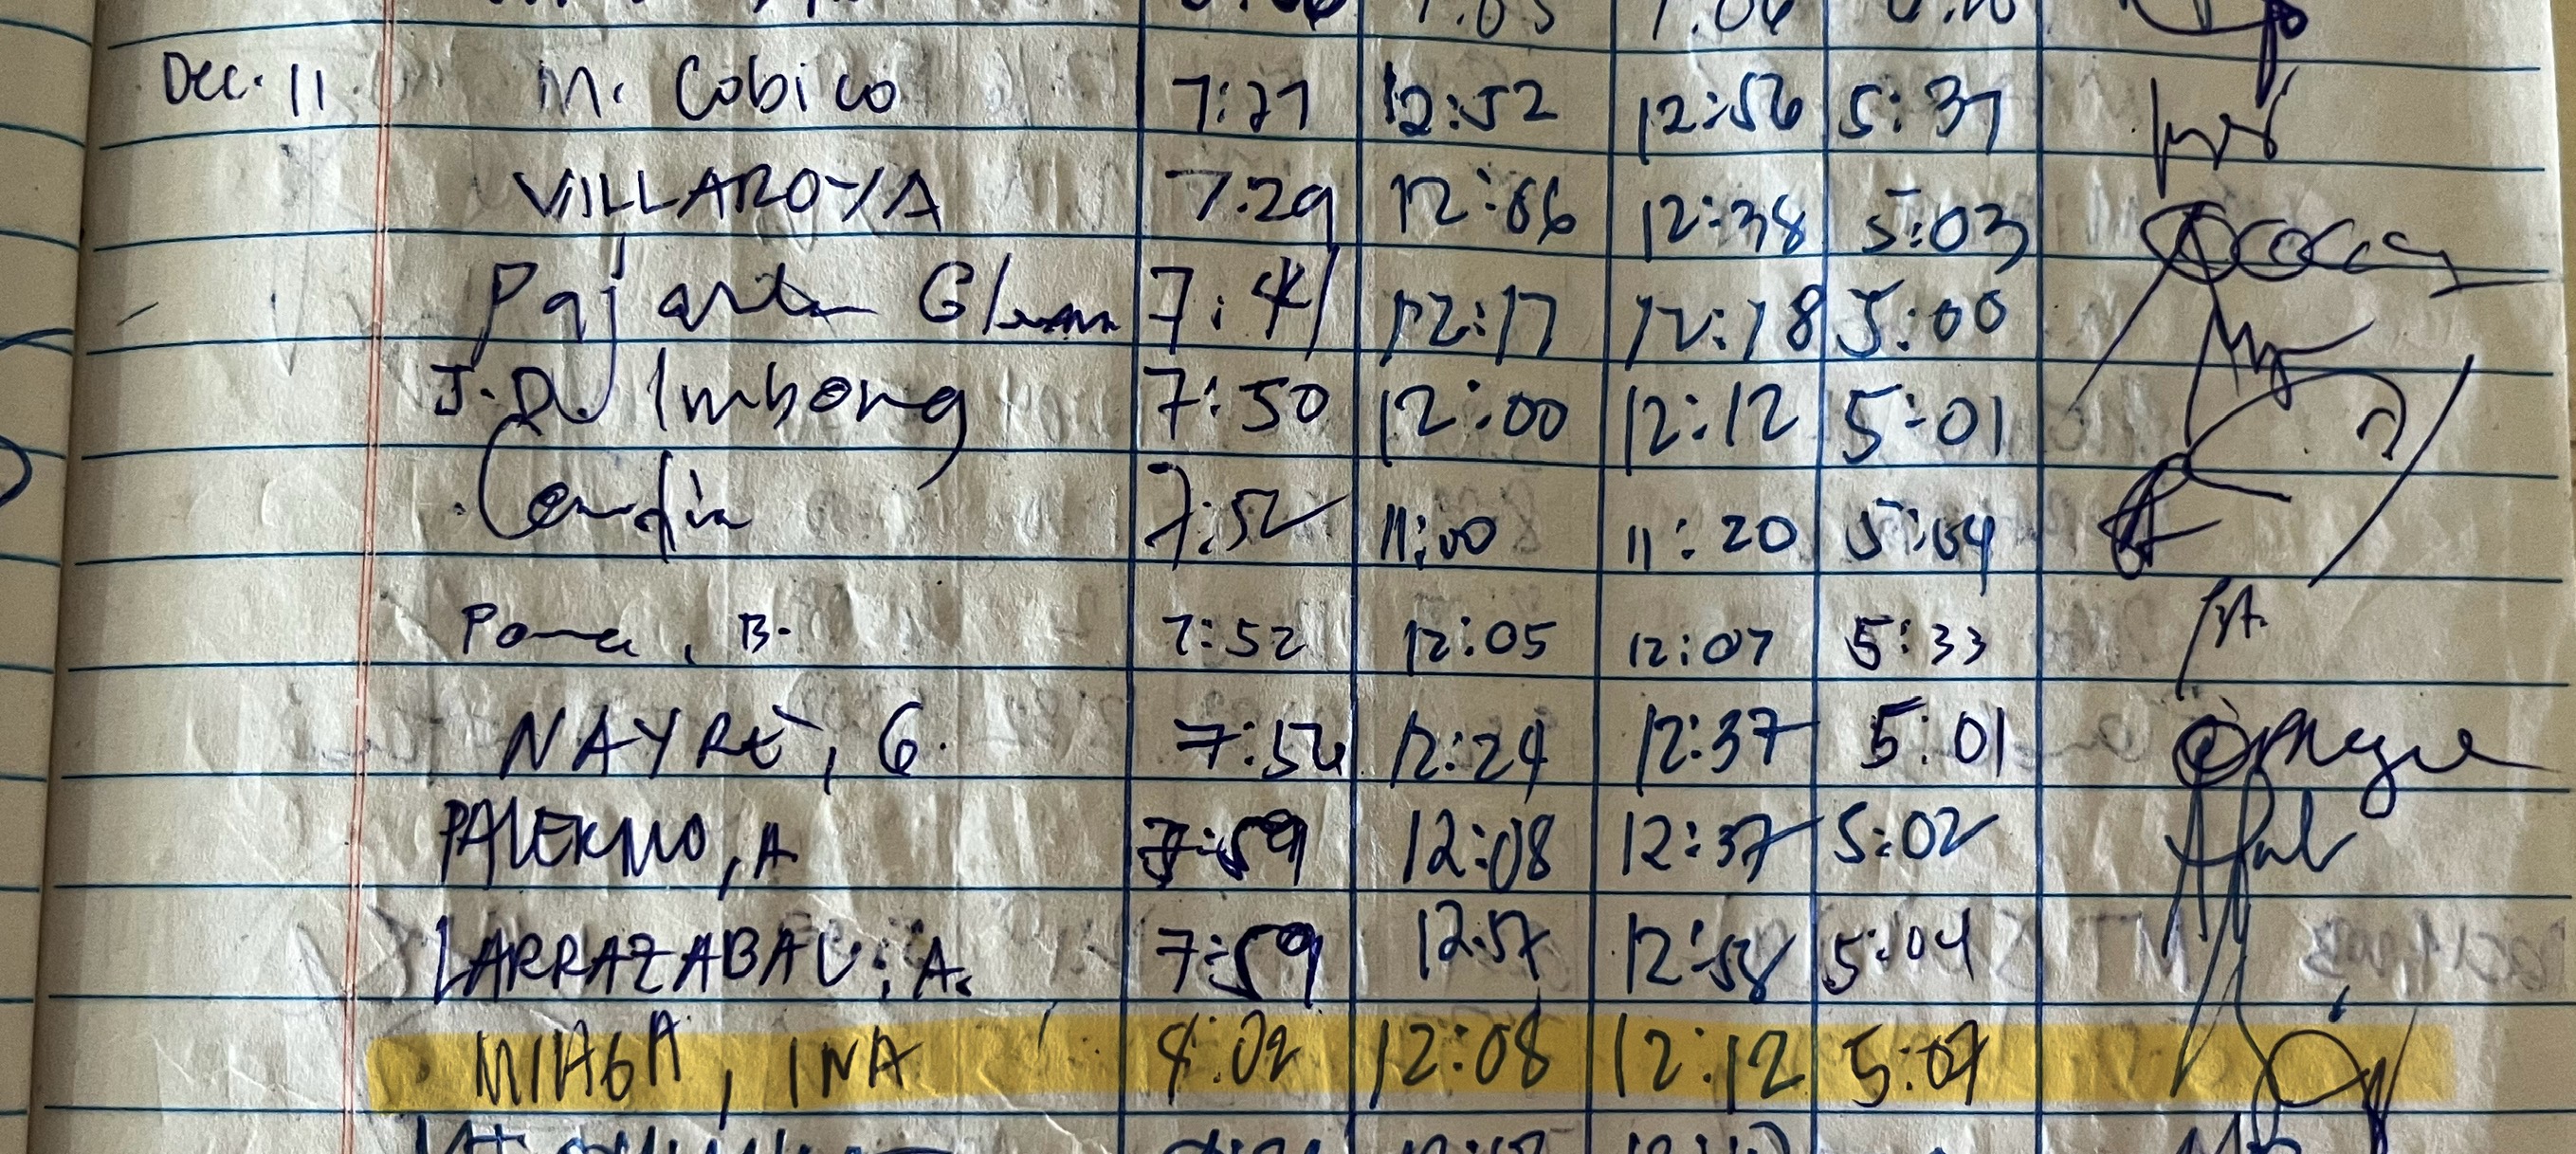 Dec. 11 M. Cobico 7:27 12:52 12:56 5:37
VILLAROYA 7:29 12:06 12:38 5:03
7:41 12:17 12:18 5:00
J.D. Imbong 7:50 12:00 12:12 5:01
7:52 11:00 11:20 5:04
B. 7:52 12:05 12:07 5:33
NAYRE, G. 7:56 12:24 12:37 5:01
PALERMO, A 7:59 12:08 12:37 5:02
LARRAZABAL, A. 7:59 12:57 12:58 5:04
MIAGA, INA 8:02 12:08 12:12 5:07